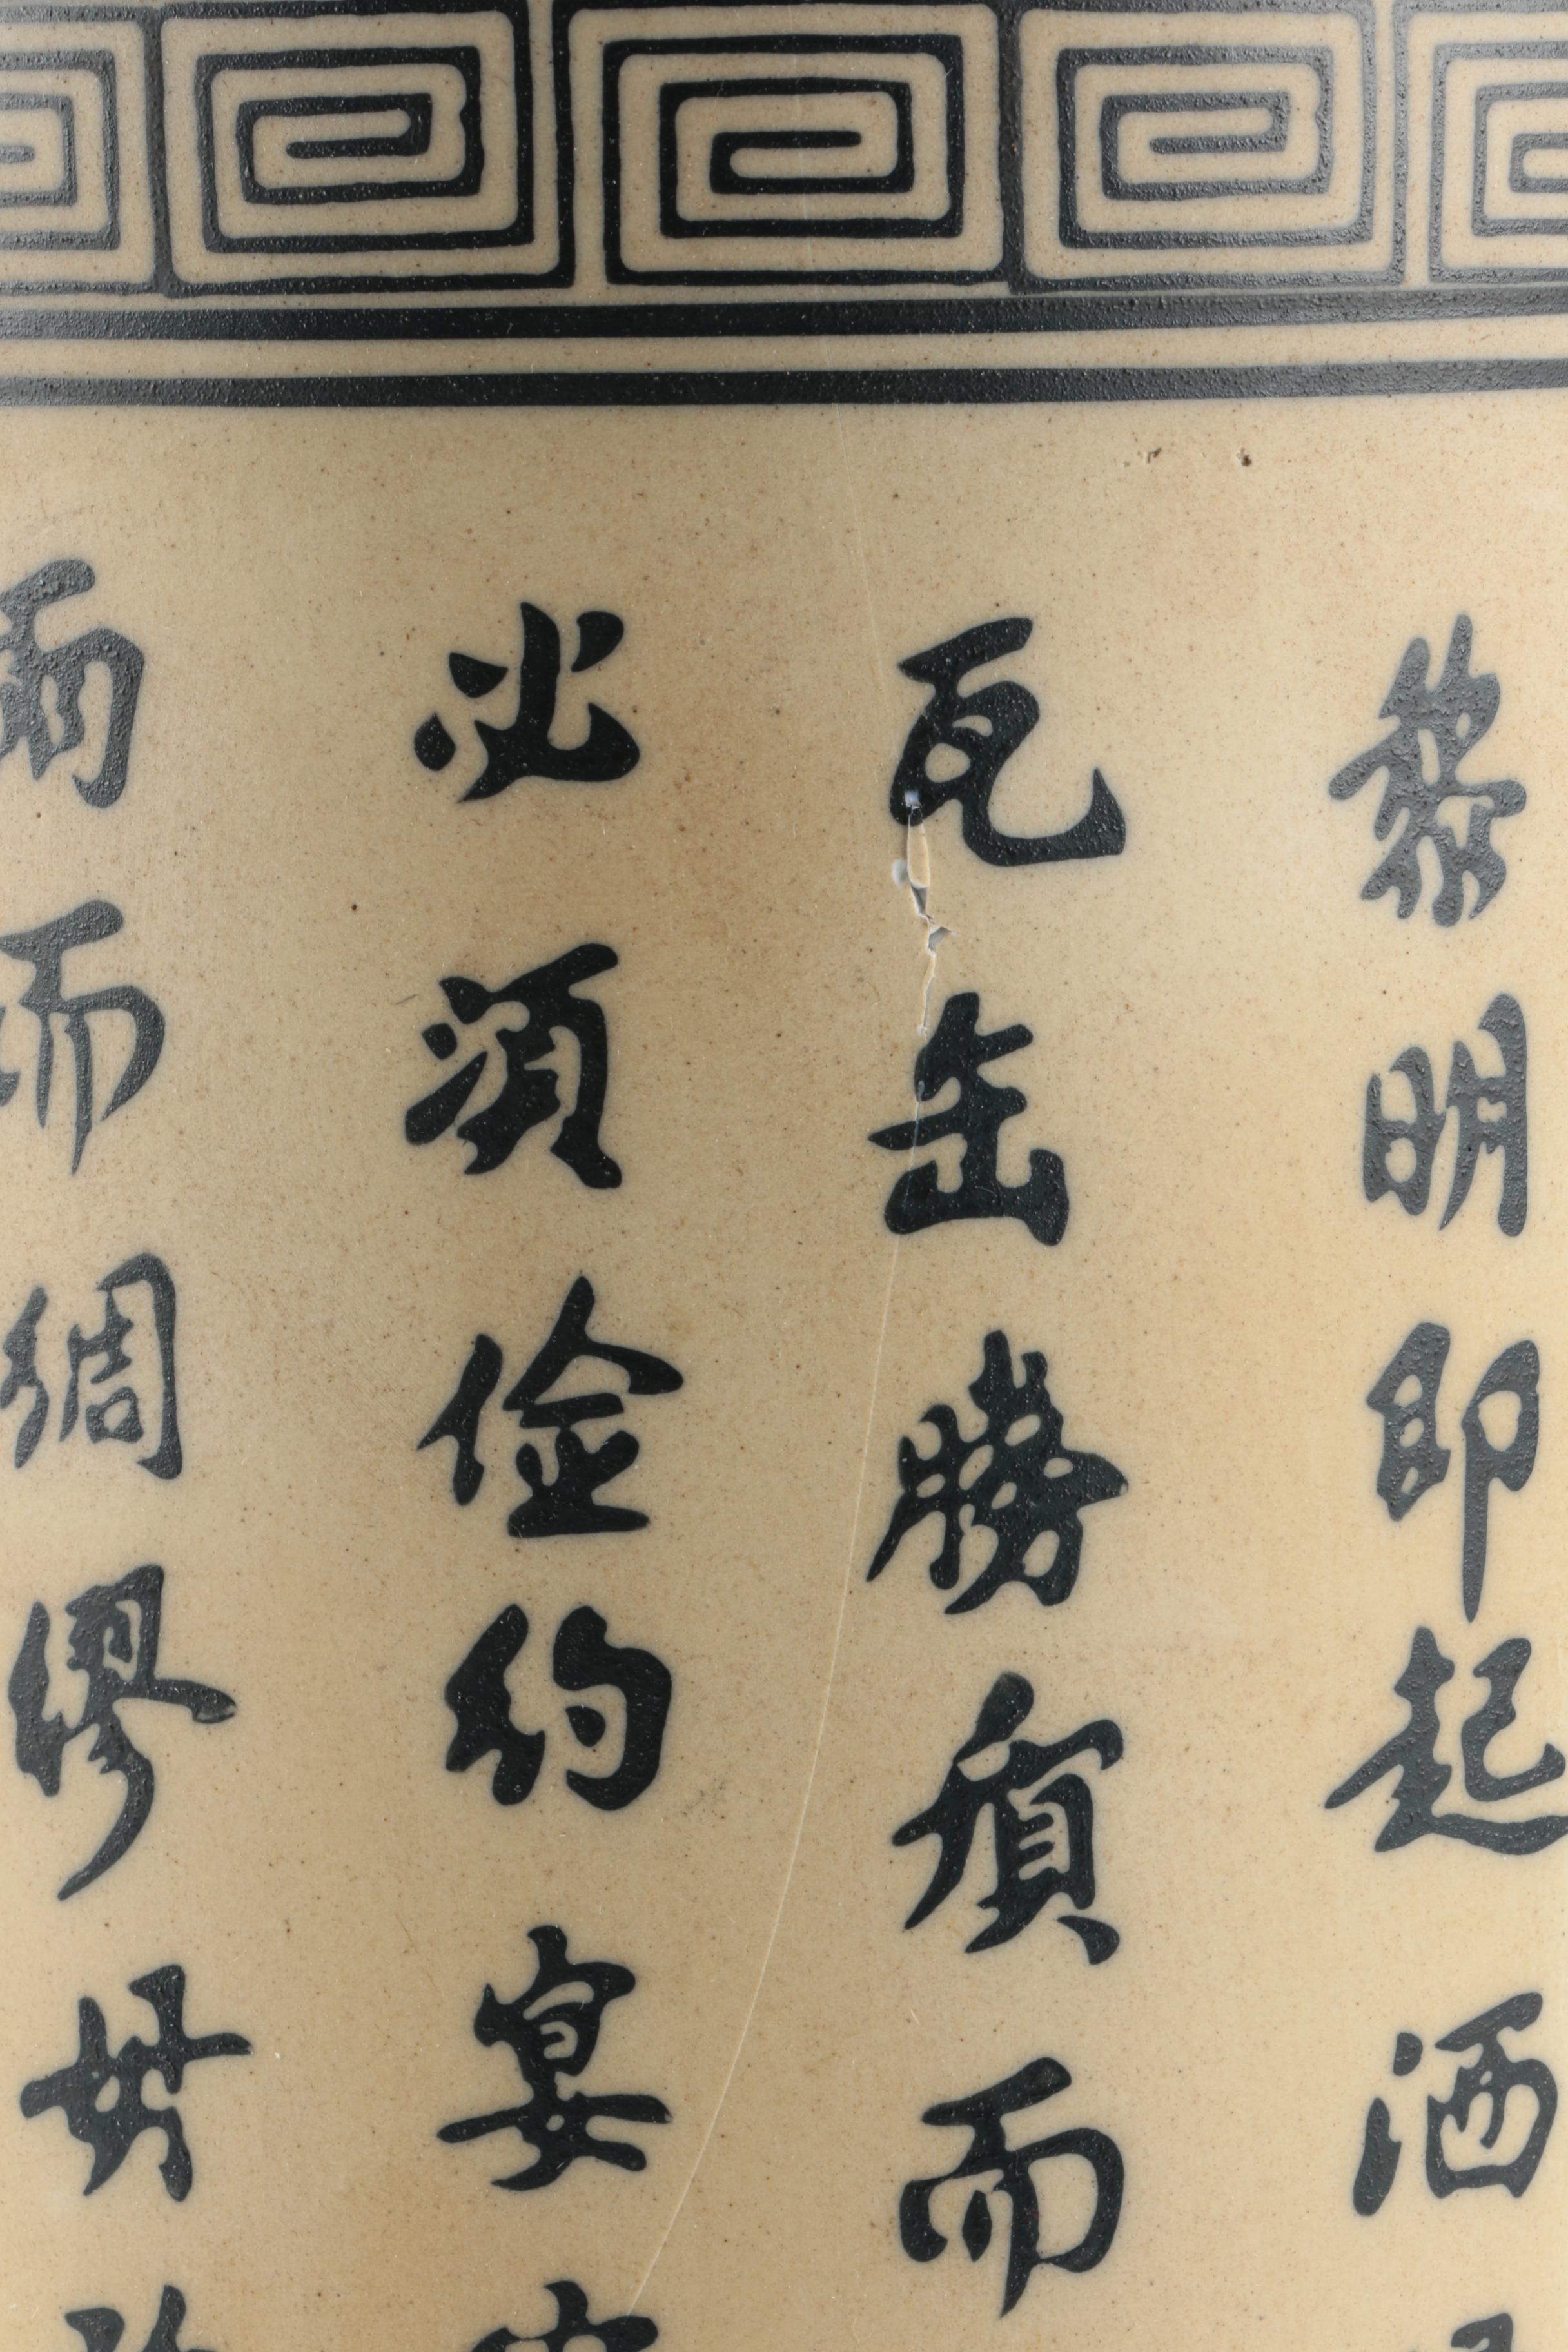 黎明即起洒
瓦缶勝須而
必須儉約宴客
雨而綢繆毋